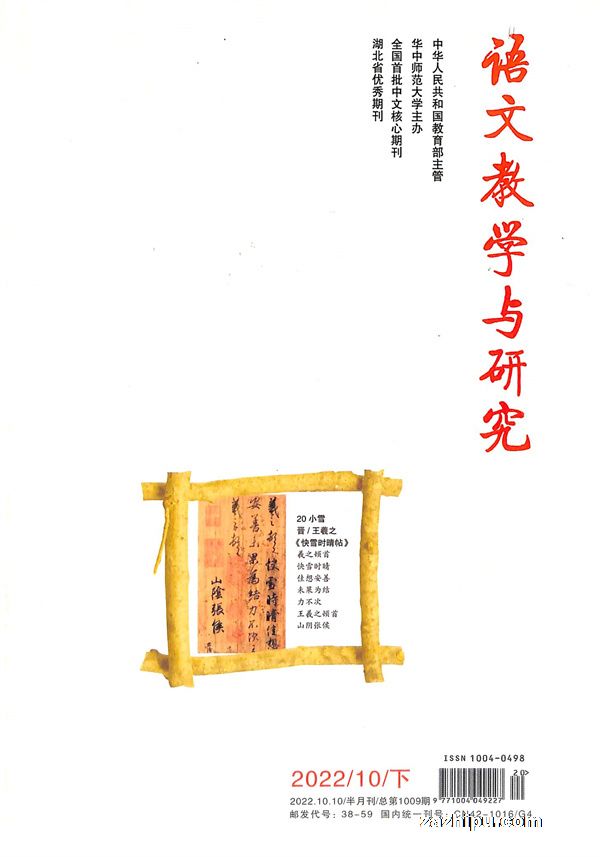 语文教学与研究
中华人民共和国教育部主管
华中师范大学主办
全国首批中文核心期刊
湖北省优秀期刊
羲之頓首快雪時晴佳想
安善未果為結力不次王
羲之頓首
山陰張侯
20 小雪
晋/王羲之
《快雪时晴帖》
羲之顿首
快雪时晴
佳想安善
未果为结
力不次
王羲之顿首
山阴张侯
ISSN 1004-0498
20>
2022/10/下
2022.10.10/半月刊/总第1009期
9 771004 049227
邮发代号：38-59 国内统一刊号：CN42-1016/G4
zazhipu.com